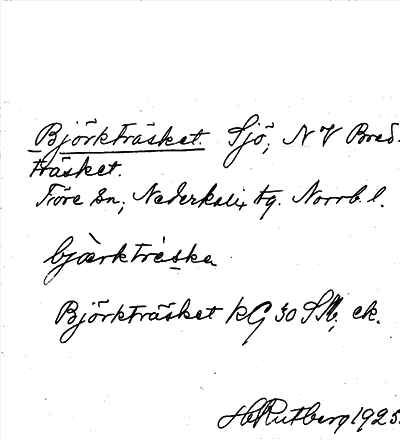 Björkträsket. Sjö, NV Bred-
träsket.
Töre sn, Nederkalix tg. Norrb. l.
bjàrktrèska
Björkträsket kG 30 SM, ek.
H Rutberg 1925.